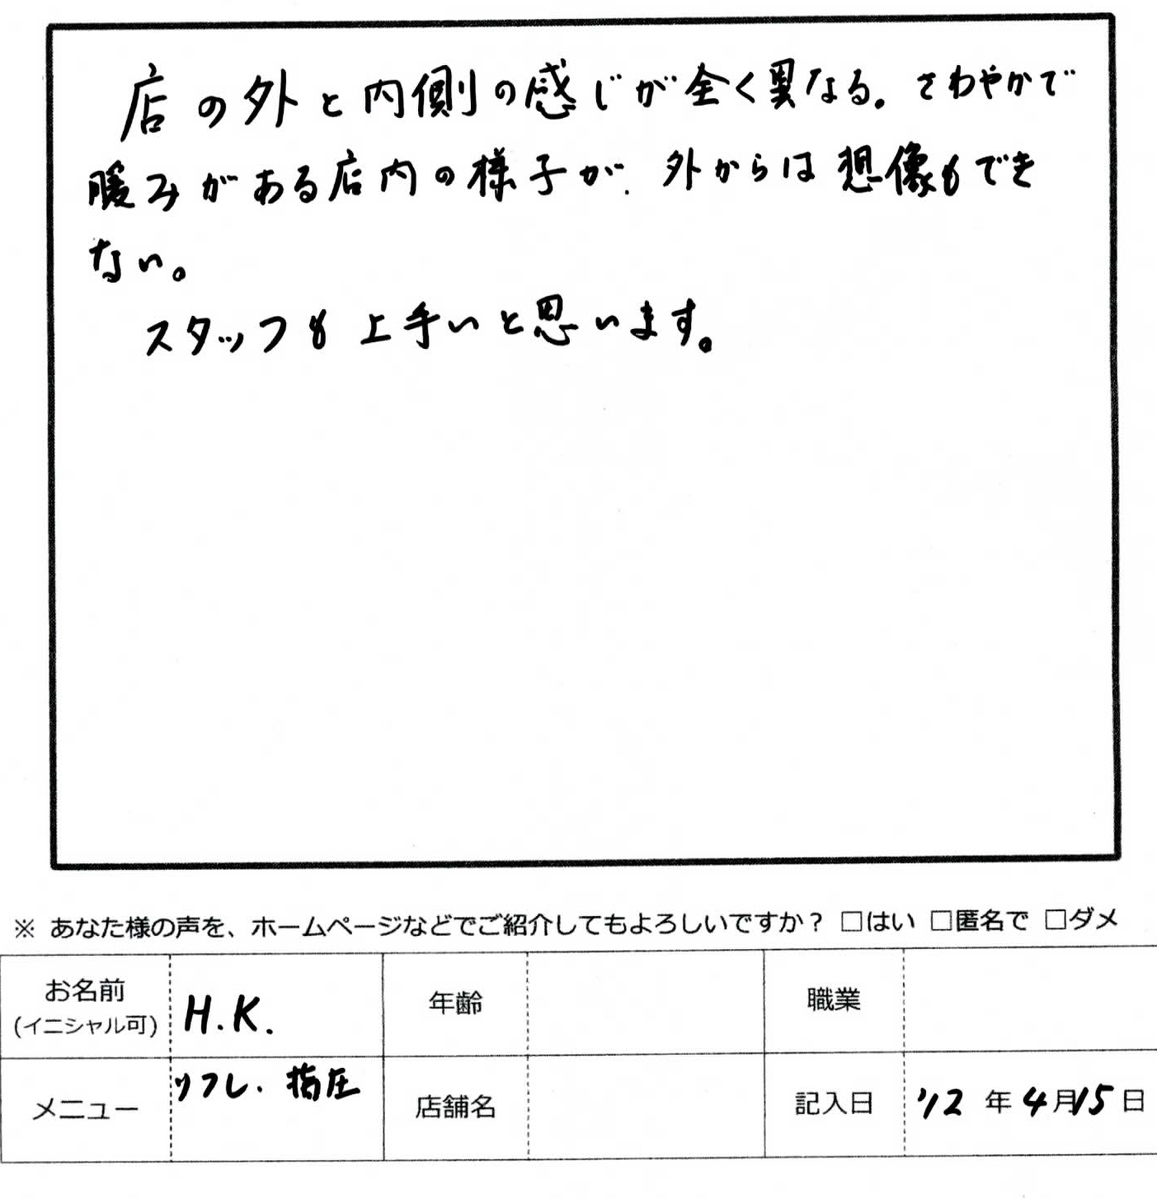 店の外と内側の感じが全く異なる。さわやかで
暖みがある店内の様子が、外からは想像もでき
ない。
スタッフも上手いと思います。
※ あなた様の声を、ホームページなどでご紹介してもよろしいですか？ □はい □匿名で □ダメ
お名前 H.K. 年齢 職業
(イニシャル可)
メニュー リフレ・指圧 店舗名 記入日 '12 年 4月15日